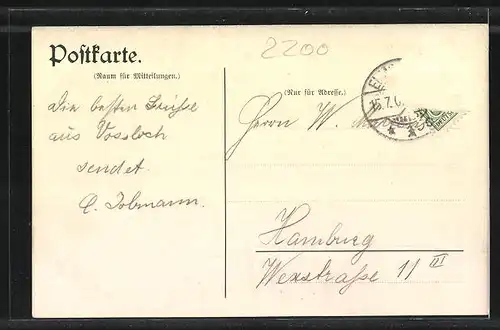 2200
Postkarte.
(Raum für Mitteilungen.)
(Nur für Adresse.)
15.7.0
Die besten Grüße
aus Vossloch
sendet
Herrn W.
Hamburg
Wexstraße 11 III